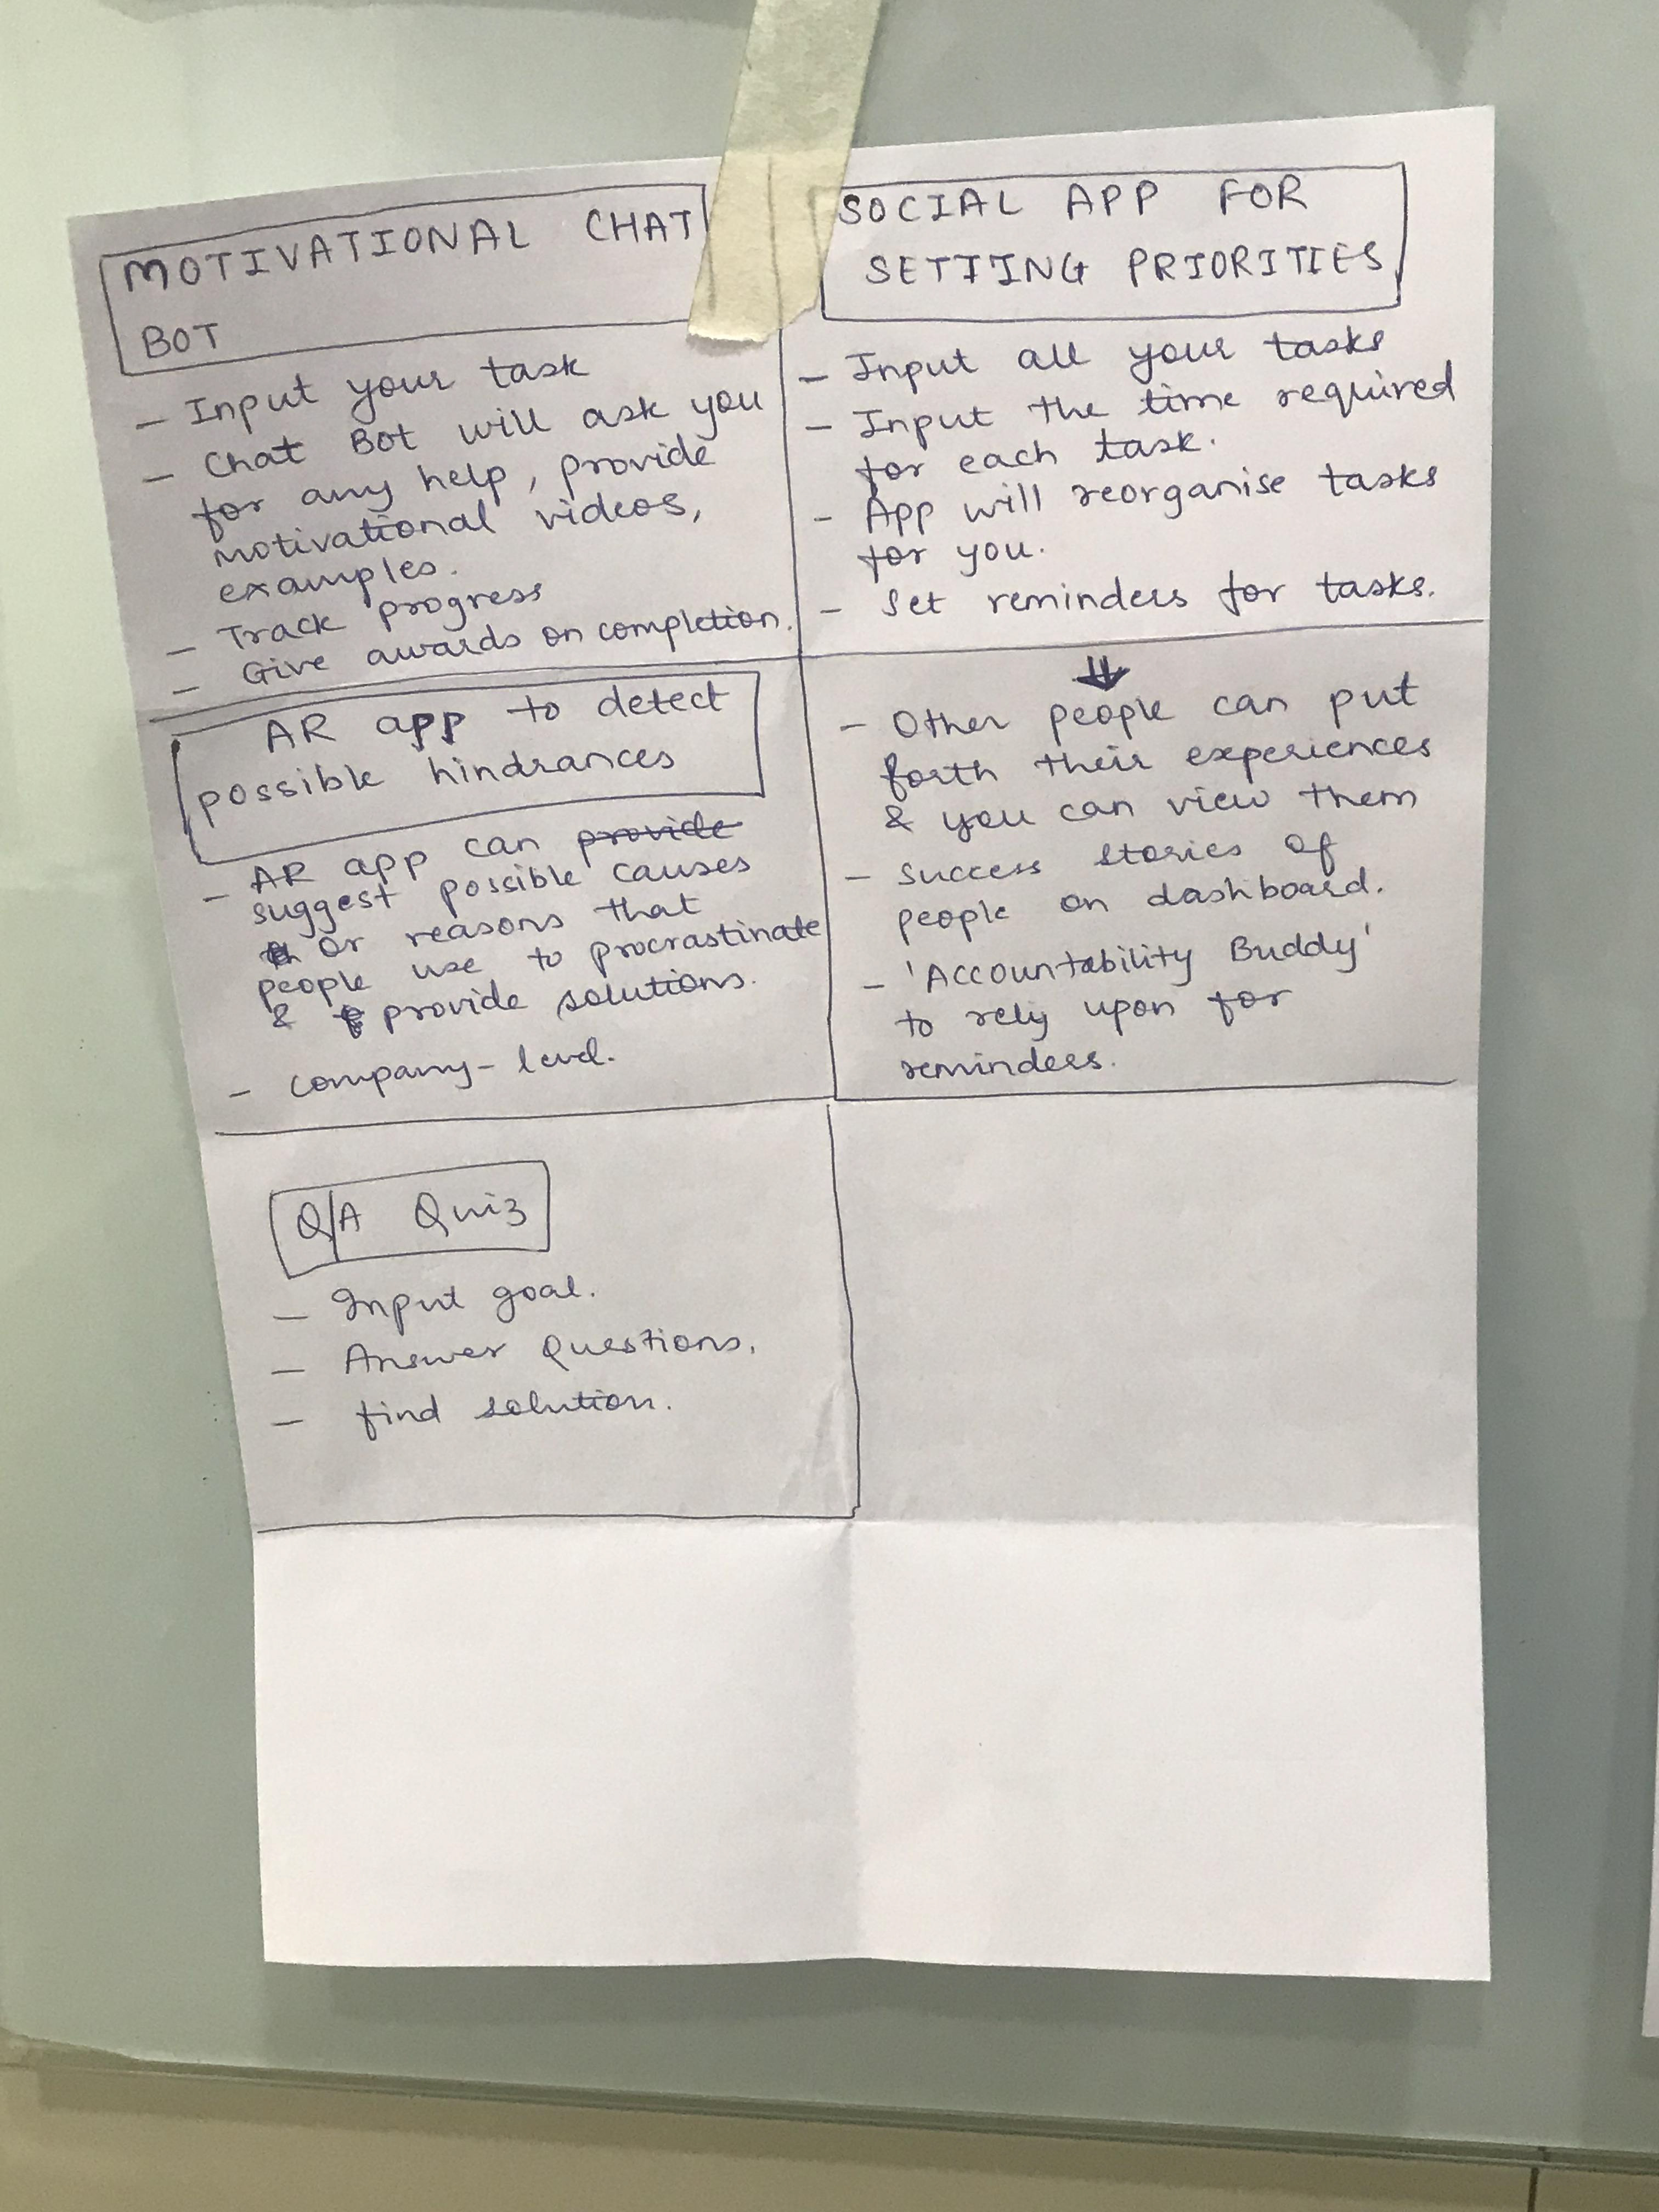 MOTIVATIONAL CHAT
BOT
- Input your task
- Chat Bot will ask you
for any help, provide
motivational videos,
examples.
- Track progress
- Give awards on completion.
SOCIAL APP FOR
SETTING PRIORITIES
- Input all your tasks
- Input the time required
for each task.
- App will reorganise tasks
for you.
- Set reminders for tasks.
AR app to detect
possible hindrances
- AR app can provide
suggest possible causes
or reasons that
people use to procrastinate
& provide solutions.
- company-level.
⇓
- Other people can put
forth their experiences
& you can view them
- Success stories of
people on dashboard.
- 'Accountability Buddy'
to rely upon for
reminders.
Q/A Quiz
- Input goal.
- Answer Questions.
- find solution.